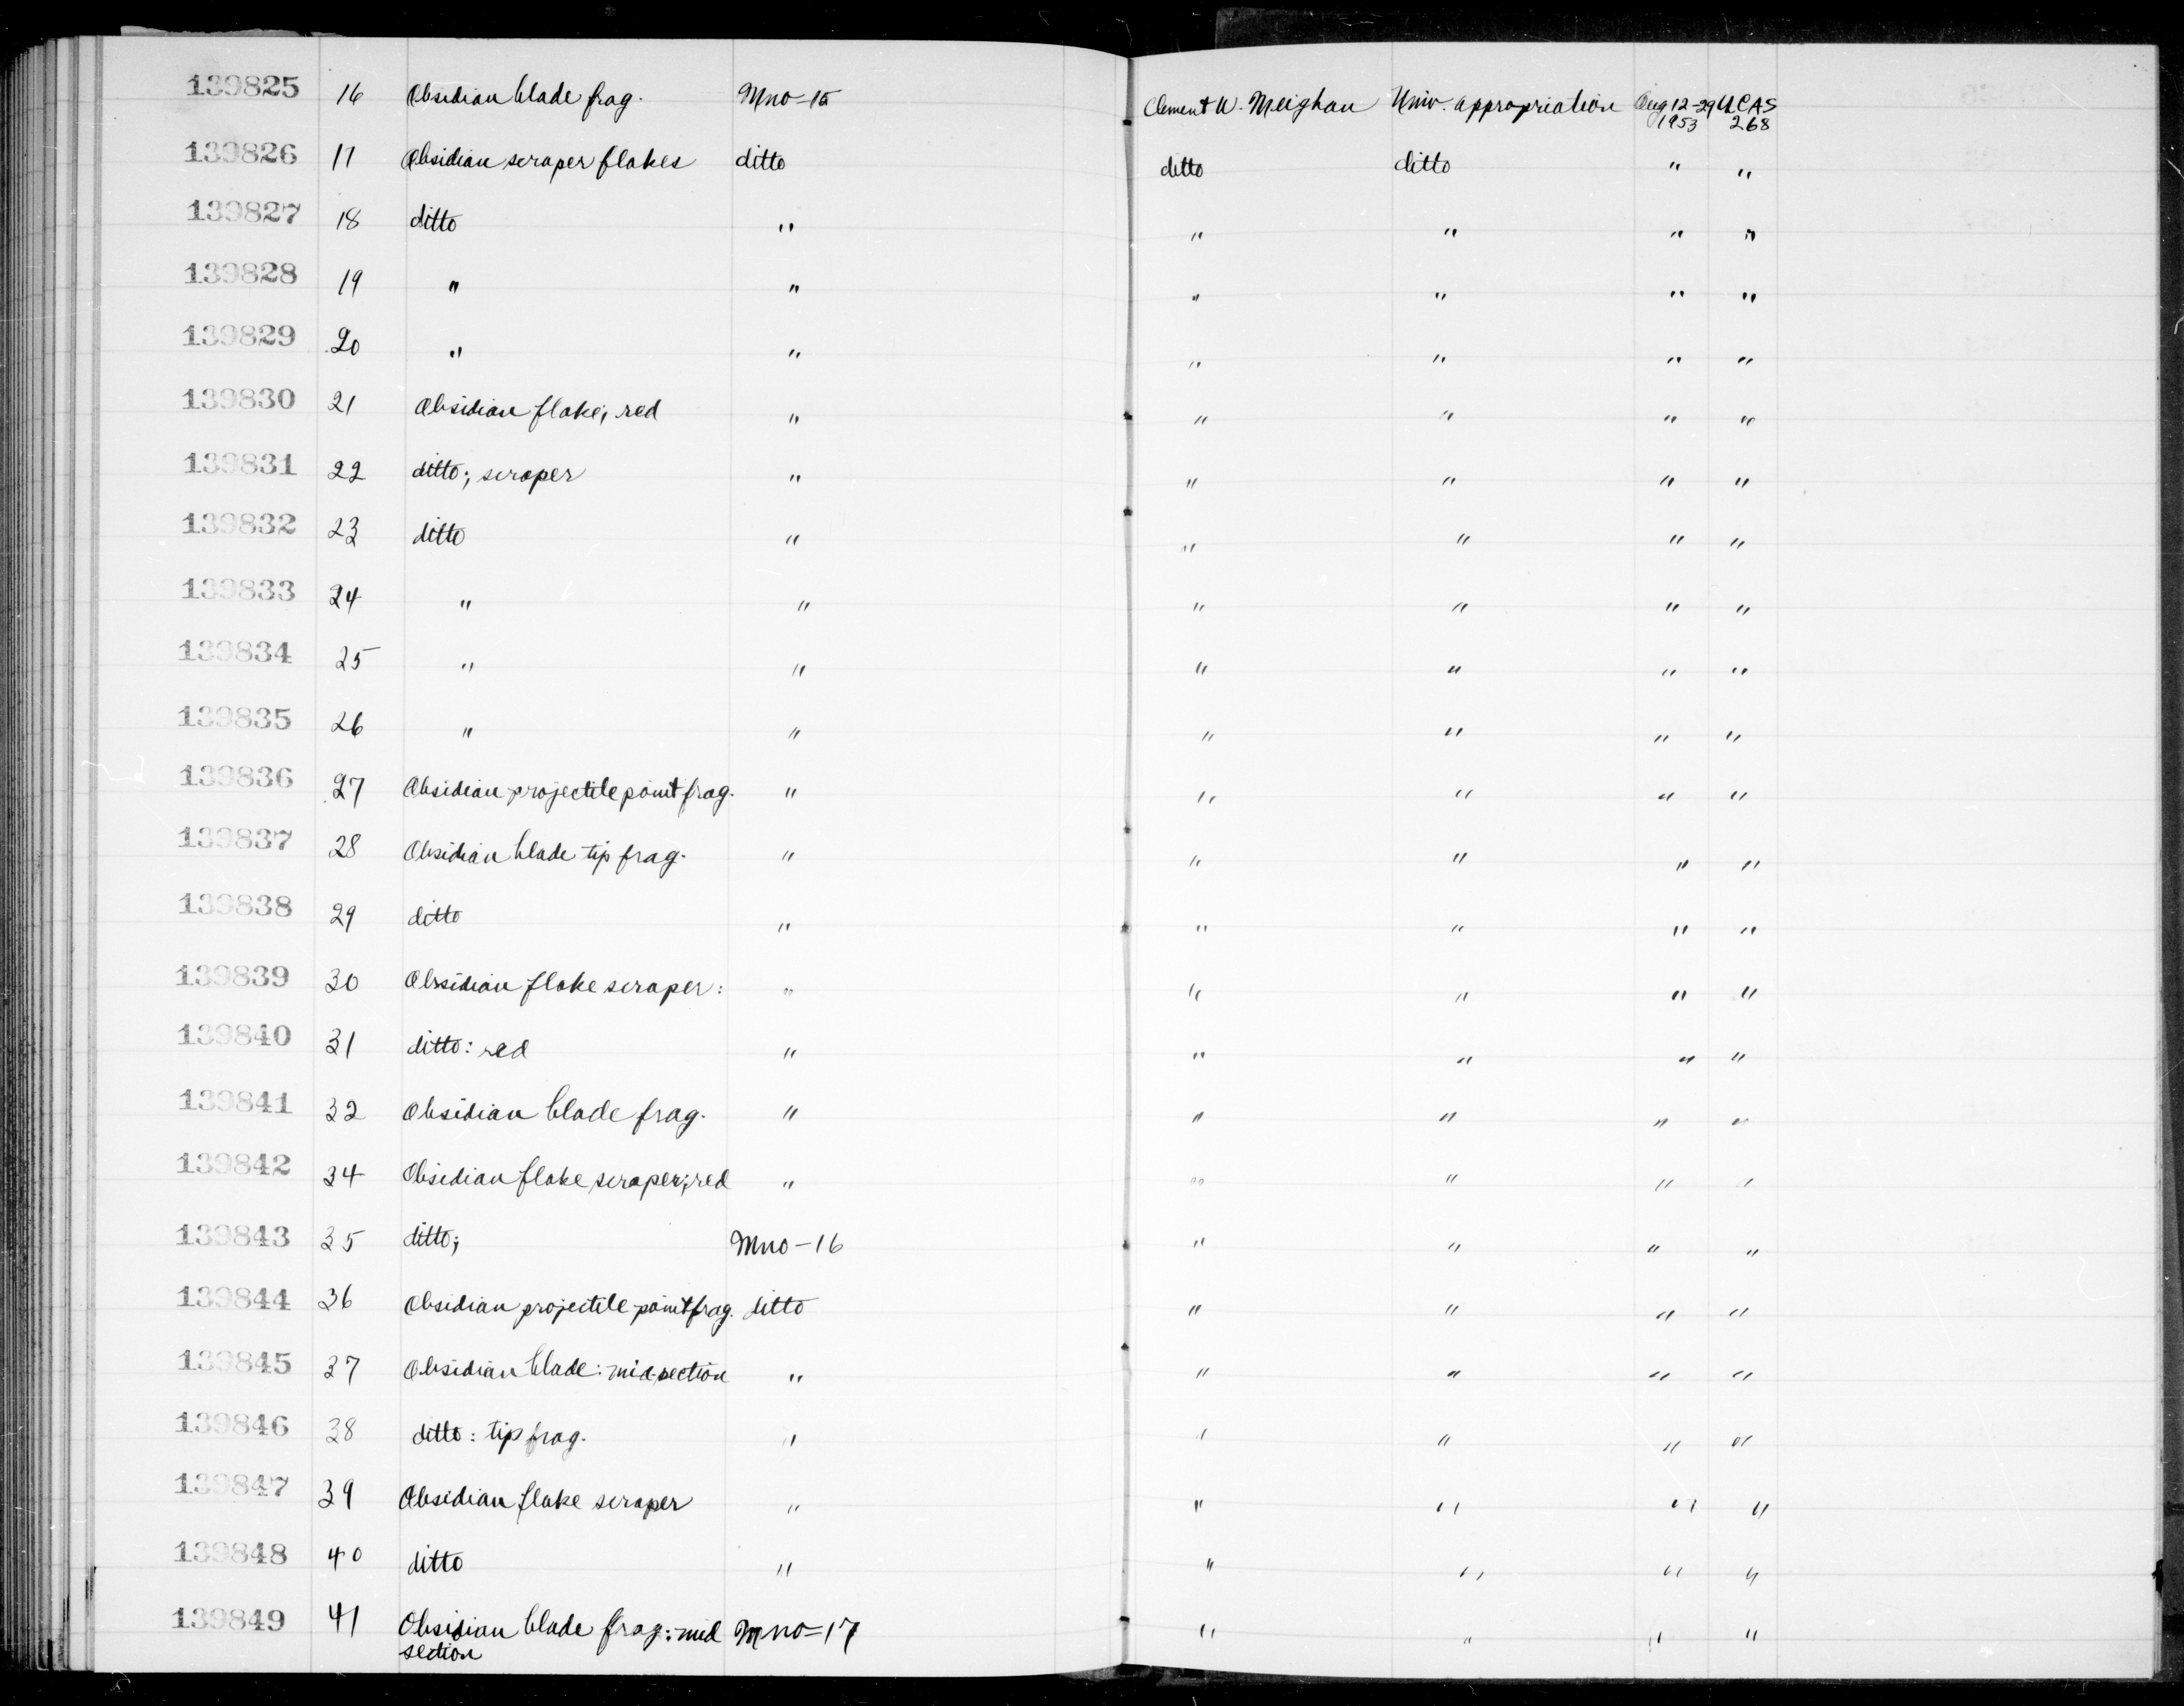 139825 16 Obsidian blade frag. Mno-15 Clement W. Meighan Univ. appropriation Aug 12-29 UCAS
1953 268
139826 17 Obsidian scraper flakes ditto ditto ditto " "
139827 18 ditto " " " " "
139828 19 " " " " " "
139829 20 " " " " " "
139830 21 Obsidian flake; red " " " " "
139831 22 ditto; scraper " " " " "
139832 23 ditto " " " " "
139833 24 " " " " " "
139834 25 " " " " " "
139835 26 " " " " " "
139836 27 Obsidian projectile point frag. " " " " "
139837 28 Obsidian blade tip frag. " " " " "
139838 29 ditto " " " " "
139839 30 Obsidian flake scraper: " " " " "
139840 31 ditto: red " " " " "
139841 32 Obsidian blade frag. " " " " "
139842 34 Obsidian flake scraper; red " " " " "
139843 35 ditto; Mno-16 " " " "
139844 36 Obsidian projectile point frag. ditto " " " "
139845 37 Obsidian blade: midsection " " " " "
139846 38 ditto: tip frag. " " " " "
139847 39 Obsidian flake scraper " " " " "
139848 40 ditto " " " " "
139849 41 Obsidian blade frag.: mid Mno-17 " " " "
section